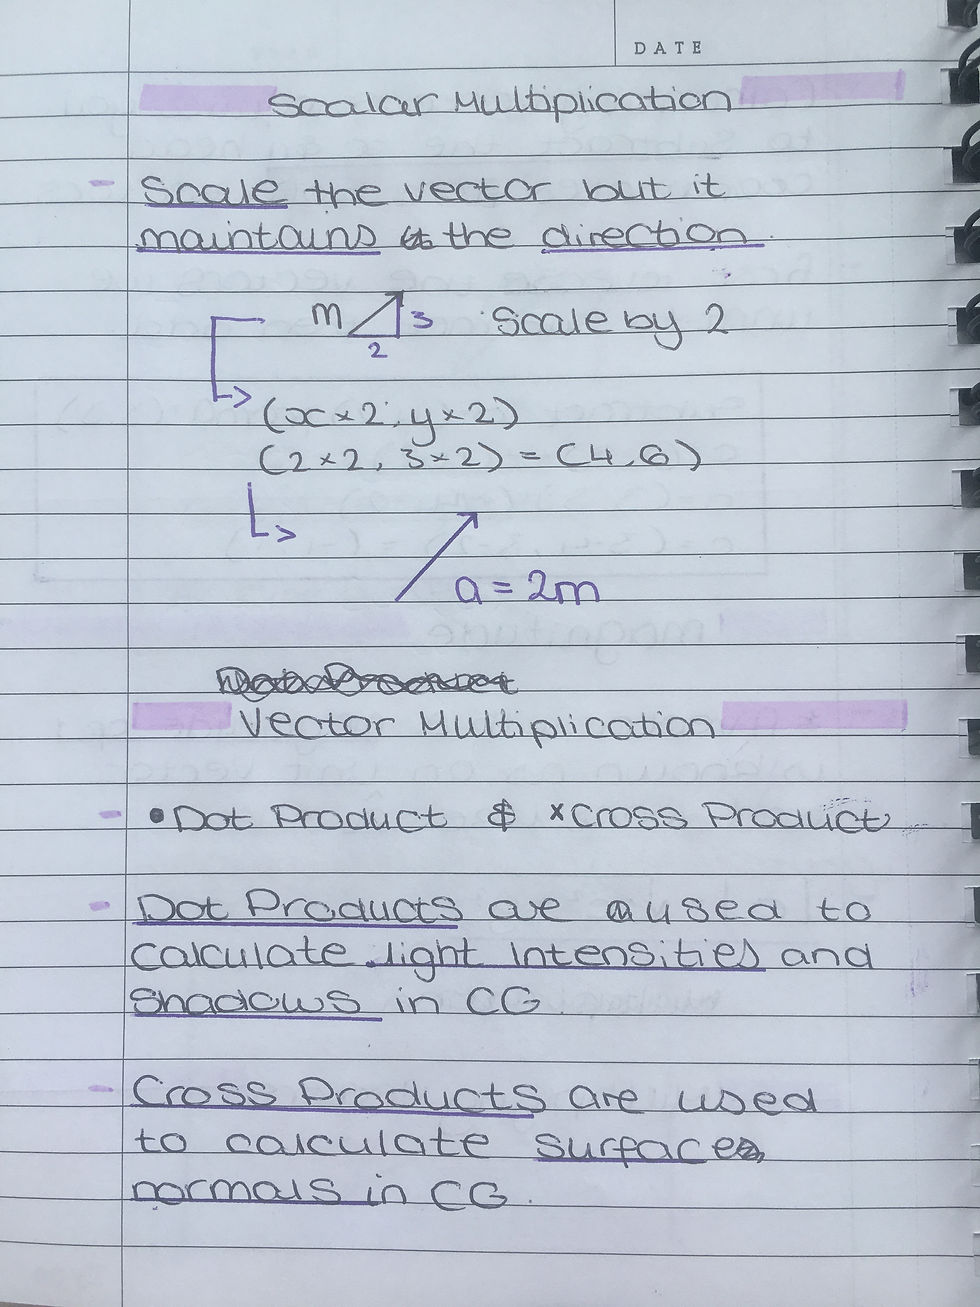 DATE
Scalar Multiplication
- Scale the vector but it
maintains the direction.
m 3 Scale by 2
2
(x×2, y×2)
(2×2, 3×2) = (4,6)
a = 2m
Vector Multiplication
- • Dot Product & × Cross Product
- Dot Products are used to
calculate light intensities and
shadows in CG.
- Cross Products are used
to calculate surface
normals in CG.